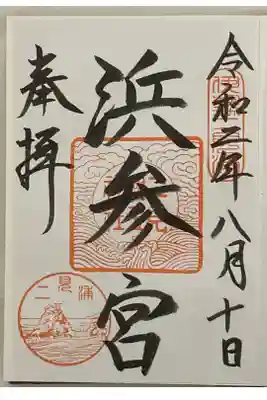 令和二年八月十日
浜参宮
奉拝
二見浦